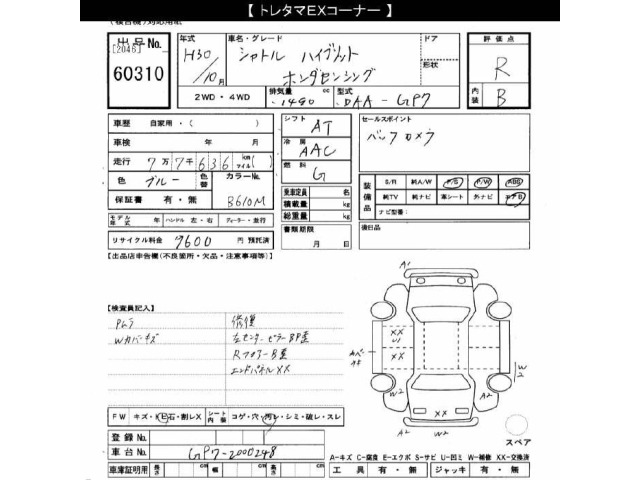 【 トレタマEXコーナー 】
(検合機)対応用紙
出品No. [2046] 60310
年式 H30/10月
車名・グレード シャトル ハイブリット ホンダセンシング
ドア 形状
評価点 R
内装 B
2WD・4WD
排気量 1490 cc
型式 DAA-GP7
車歴 自家用・( )
車検 年 月
走行 7万7千636 km マイル( )
色 ブルー 色替 カラーNo. B610M
保証書 有・無
モデル年式 年 ハンドル 左・右 ディーラー・並行
リサイクル料金 9600 円 預託済
シフト AT
冷房 AAC
燃料 G
乗車定員 名
積載量 kg
総重量 kg
書類期限 月 日
セールスポイント
バックカメラ
装備品 S/R 純A/W P/S P/W ABS
純TV 純ナビ 革シート 外ナビ エアB
ナビ型番:
備日品
【出品店申告欄(不良箇所・欠品・注意事項等)】
【検査員記入】
Wカバーキズ
修復
左センターピラーBP歪
Rフロアー B歪
エンドパネルXX
A1
XX
U1
XX
W2
W2
W2
XX
A2
W2
A2
スペア
FW キズ・トビ石・割レX シート内張 コゲ・穴・汚レ・シミ・破レ・スレ
登録No.
車台No. GP7-2000248
車庫証明用 長さ cm 幅 cm 高さ cm
A-キズ C-腐食 E-エクボ S-サビ U-凹ミ W-補修 XX-交換済
工具 有・無 ジャッキ 有・無